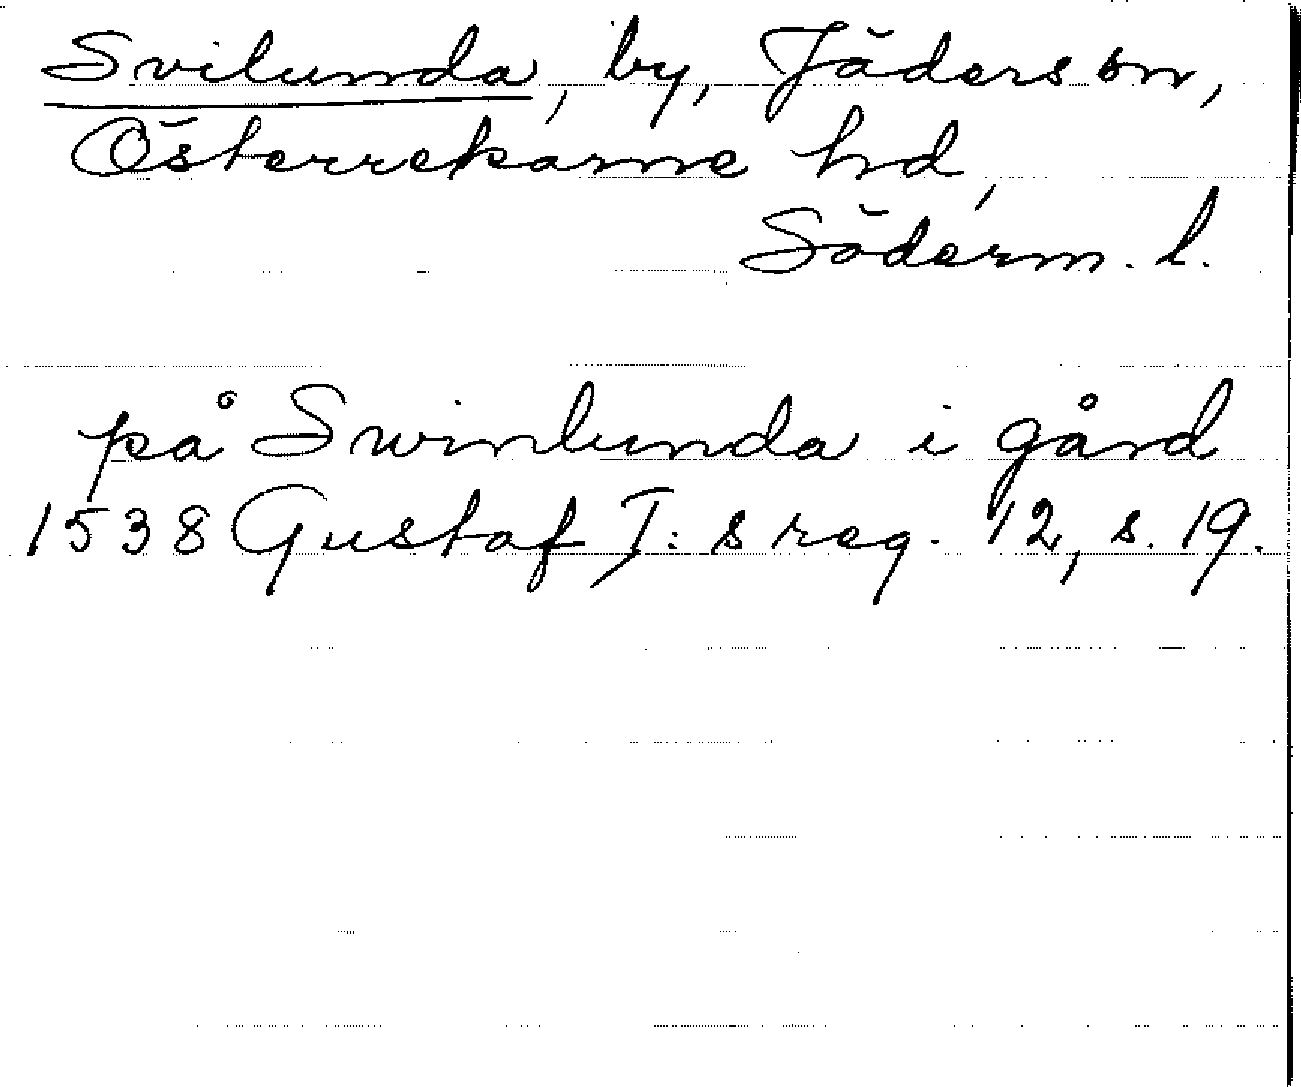 Svilunda, by, Jäders sn,
Österrekarne hd,
Söderm. l.
på Swinlunda i gård
1538 Gustaf I:s reg. 12, s. 19.